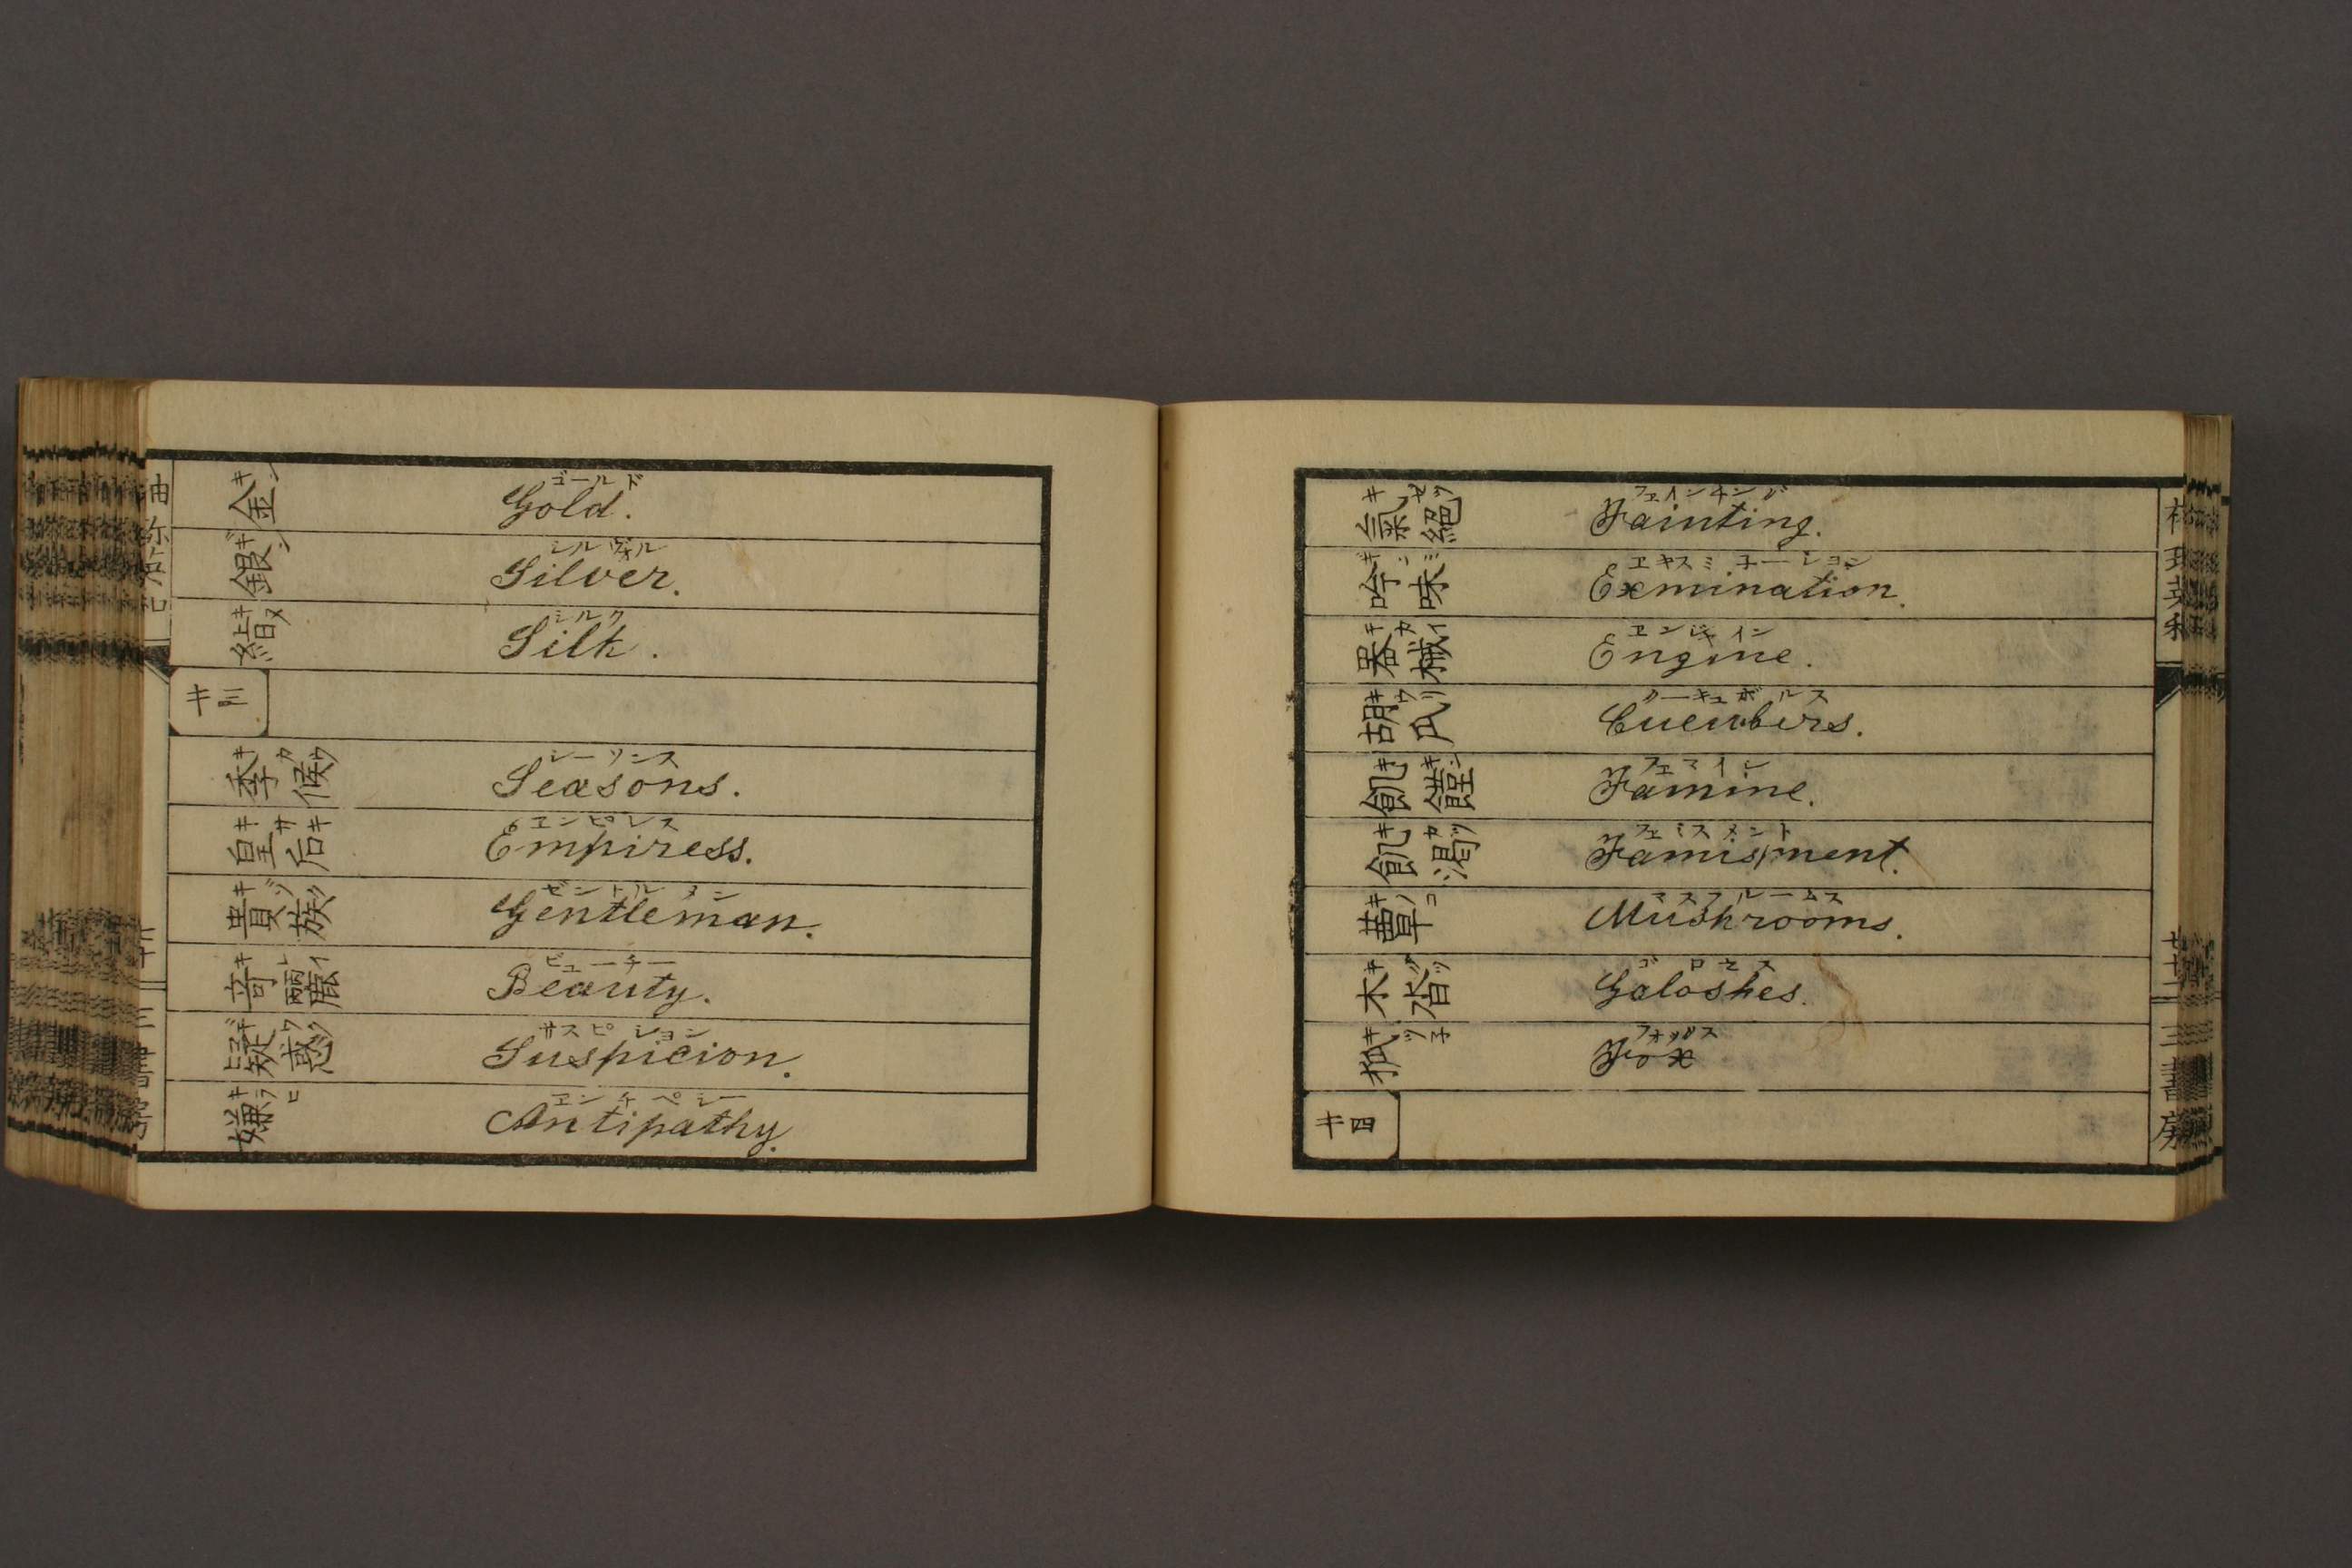 金 キン
ゴールド
Gold.
銀 ギン
シルヴォル
Silver.
絹 キヌ
シルク
Silk.
キ三
季候 キカウ
シーソンス
Seasons.
皇后 キサキ
エンピレス
Empiress.
貴族 キゾク
ゼントルメン
Gentleman.
奇麗 キレイ
ビューチー
Beauty.
疑惑 ギワク
サスピション
Suspicion.
嫌 キラヒ
エンチペシー
Antipathy.
氣絕 キゼツ
フェインチング
Fainting.
吟味 ギンミ
エキスミネーション
Exmination.
器械 キカイ
エンジャイン
Engine.
胡瓜 キウリ
クーキュボルス
Cuewbers.
飢饉 キキン
フェマイン
Famine.
飢渴 キカツ
フェミスメント
Famisment.
蕈 キノコ
マスフルームス
Mushrooms.
木沓 キグツ
ゴロセス
Galoshes.
狐 キツネ
フォックス
Fox
キ四
三書房